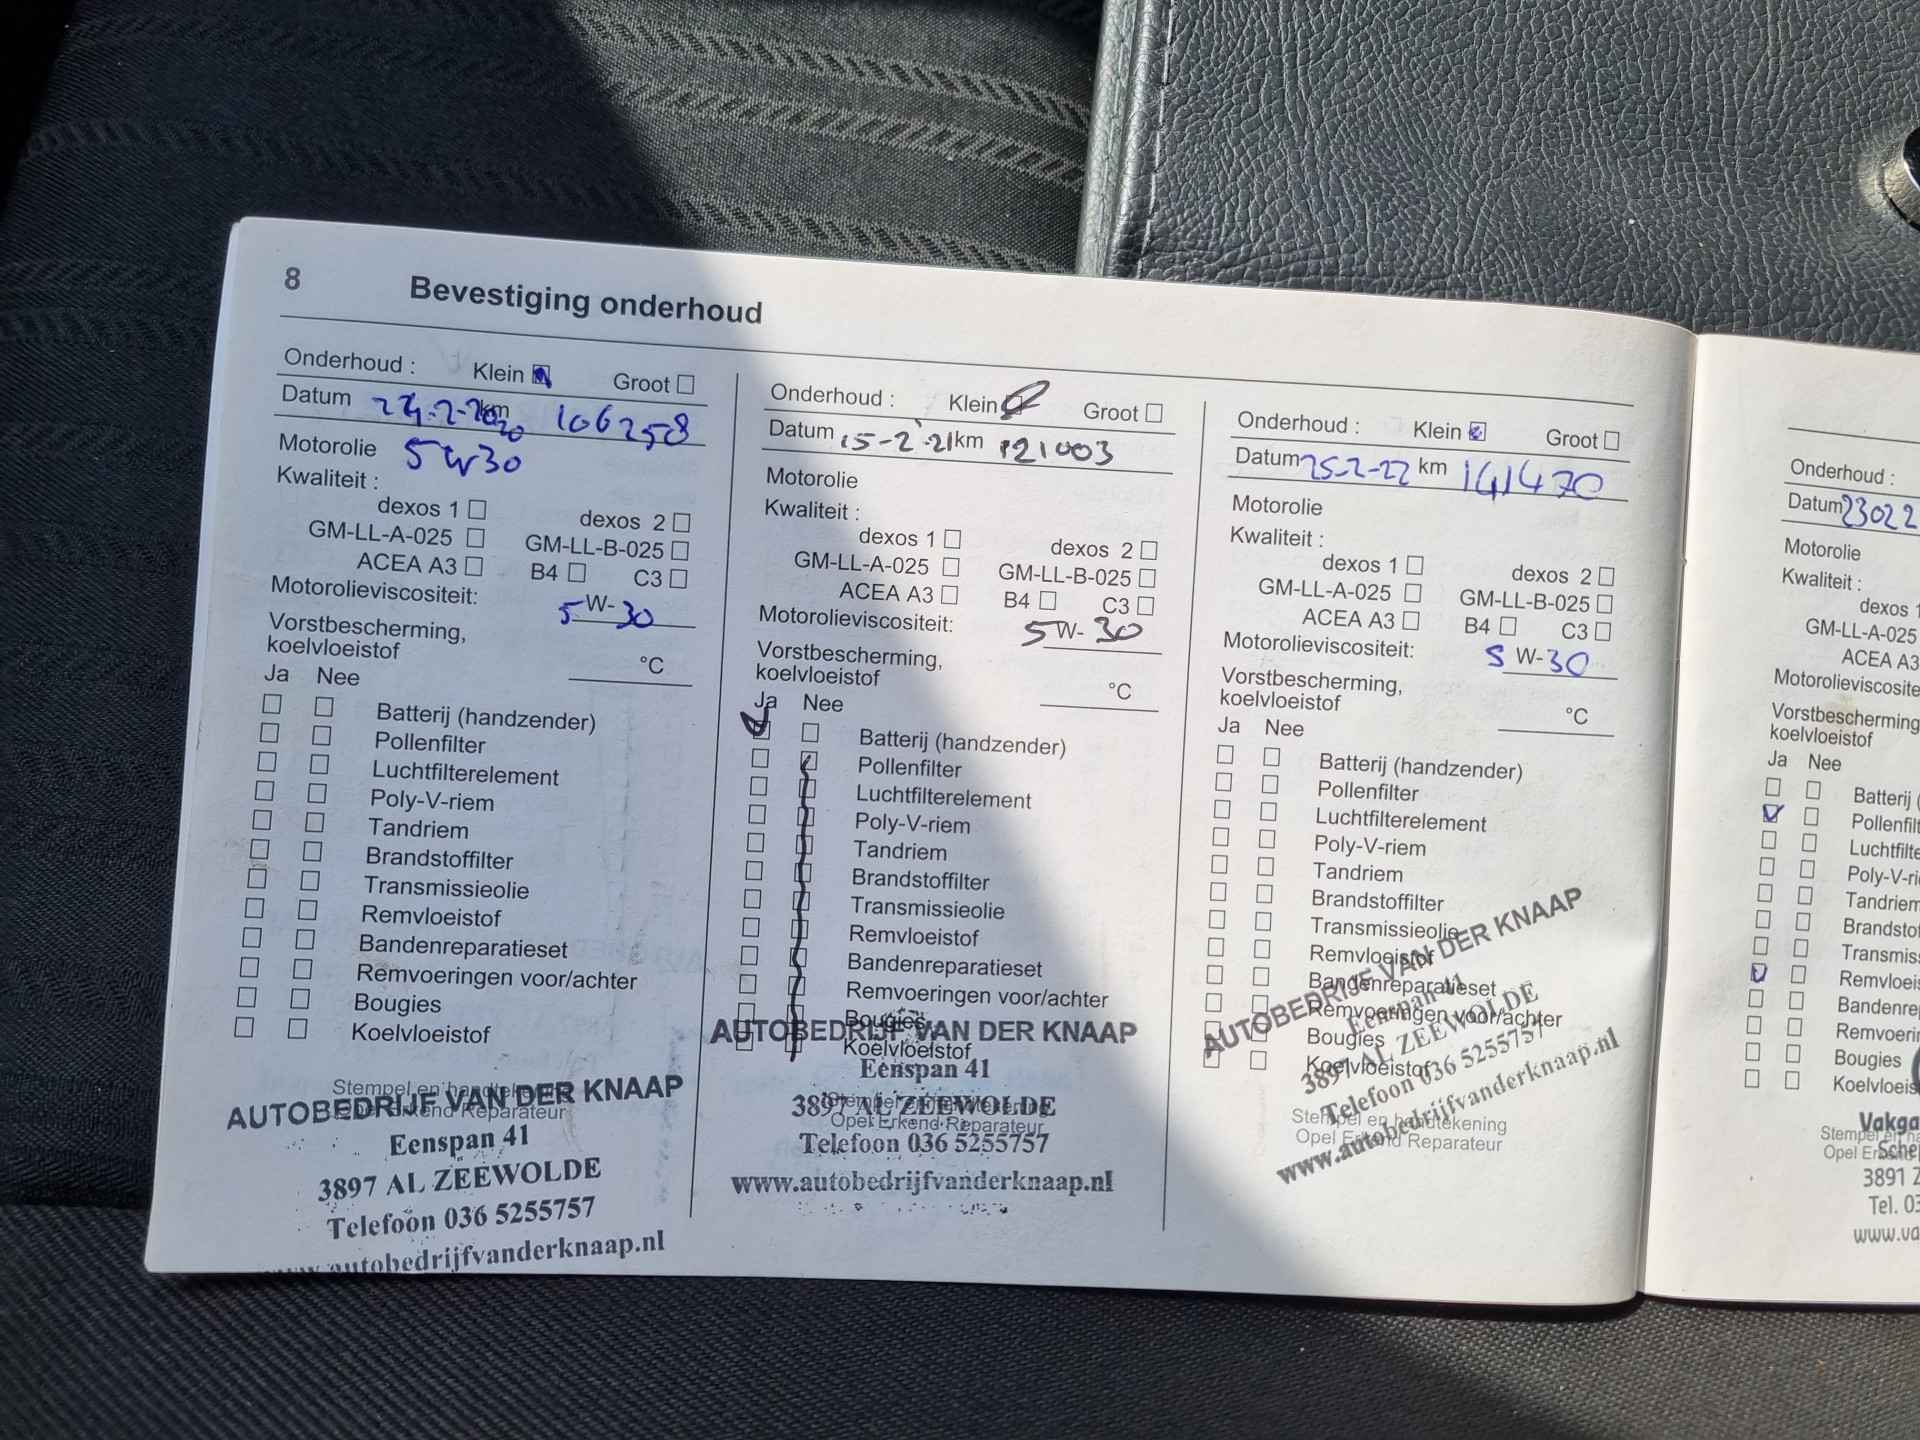 8 Bevestiging onderhoud
Onderhoud : Klein Groot
Datum 24-2-2020 km 106258
Motorolie 5W30
Kwaliteit :
dexos 1 dexos 2
GM-LL-A-025 GM-LL-B-025
ACEA A3 B4 C3
Motorolieviscositeit: 5 W- 30
Vorstbescherming,
koelvloeistof °C
Ja Nee
Batterij (handzender)
Pollenfilter
Luchtfilterelement
Poly-V-riem
Tandriem
Brandstoffilter
Transmissieolie
Remvloeistof
Bandenreparatieset
Remvoeringen voor/achter
Bougies
Koelvloeistof
Stempel en handtekening
Opel Erkend Reparateur
AUTOBEDRIJF VAN DER KNAAP
Eenspan 41
3897 AL ZEEWOLDE
Telefoon 036 5255757
www.autobedrijfvanderknaap.nl
Onderhoud : Klein Groot
Datum 15-2-21 km 121003
Motorolie
Kwaliteit :
dexos 1 dexos 2
GM-LL-A-025 GM-LL-B-025
ACEA A3 B4 C3
Motorolieviscositeit: 5 W- 30
Vorstbescherming,
koelvloeistof °C
Ja Nee
Batterij (handzender)
Pollenfilter
Luchtfilterelement
Poly-V-riem
Tandriem
Brandstoffilter
Transmissieolie
Remvloeistof
Bandenreparatieset
Remvoeringen voor/achter
Bougies
Koelvloeistof
AUTOBEDRIJF VAN DER KNAAP
Eenspan 41
3897 AL ZEEWOLDE
Stempel en handtekening
Opel Erkend Reparateur
Telefoon 036 5255757
www.autobedrijfvanderknaap.nl
Onderhoud : Klein Groot
Datum 25-2-22 km 141470
Motorolie
Kwaliteit :
dexos 1 dexos 2
GM-LL-A-025 GM-LL-B-025
ACEA A3 B4 C3
Motorolieviscositeit: 5 W-30
Vorstbescherming,
koelvloeistof °C
Ja Nee
Batterij (handzender)
Pollenfilter
Luchtfilterelement
Poly-V-riem
Tandriem
Brandstoffilter
Transmissieolie
Remvloeistof
Bandenreparatieset
Remvoeringen voor/achter
Bougies
Koelvloeistof
AUTOBEDRIJF VAN DER KNAAP
Eenspan 41
3897 AL ZEEWOLDE
Telefoon 036 5255757
www.autobedrijfvanderknaap.nl
Stempel en handtekening
Opel Erkend Reparateur
Onderhoud :
Datum 23022
Motorolie
Kwaliteit :
dexos 1
GM-LL-A-025
ACEA A3
Motorolieviscosite
Vorstbescherming
koelvloeistof
Ja Nee
Batterij (
Pollenfilt
Luchtfilte
Poly-V-ri
Tandriem
Brandsto
Transmis
Remvloeis
Bandenre
Remvoerin
Bougies
Koelvloeis
Vakga
Stempel en ha
Opel Er
Sche
3891 Z
Tel. 03
www.va